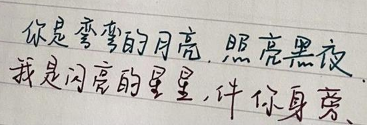 你是弯弯的月亮.照亮黑夜.
我是闪亮的星星,伴你身旁、